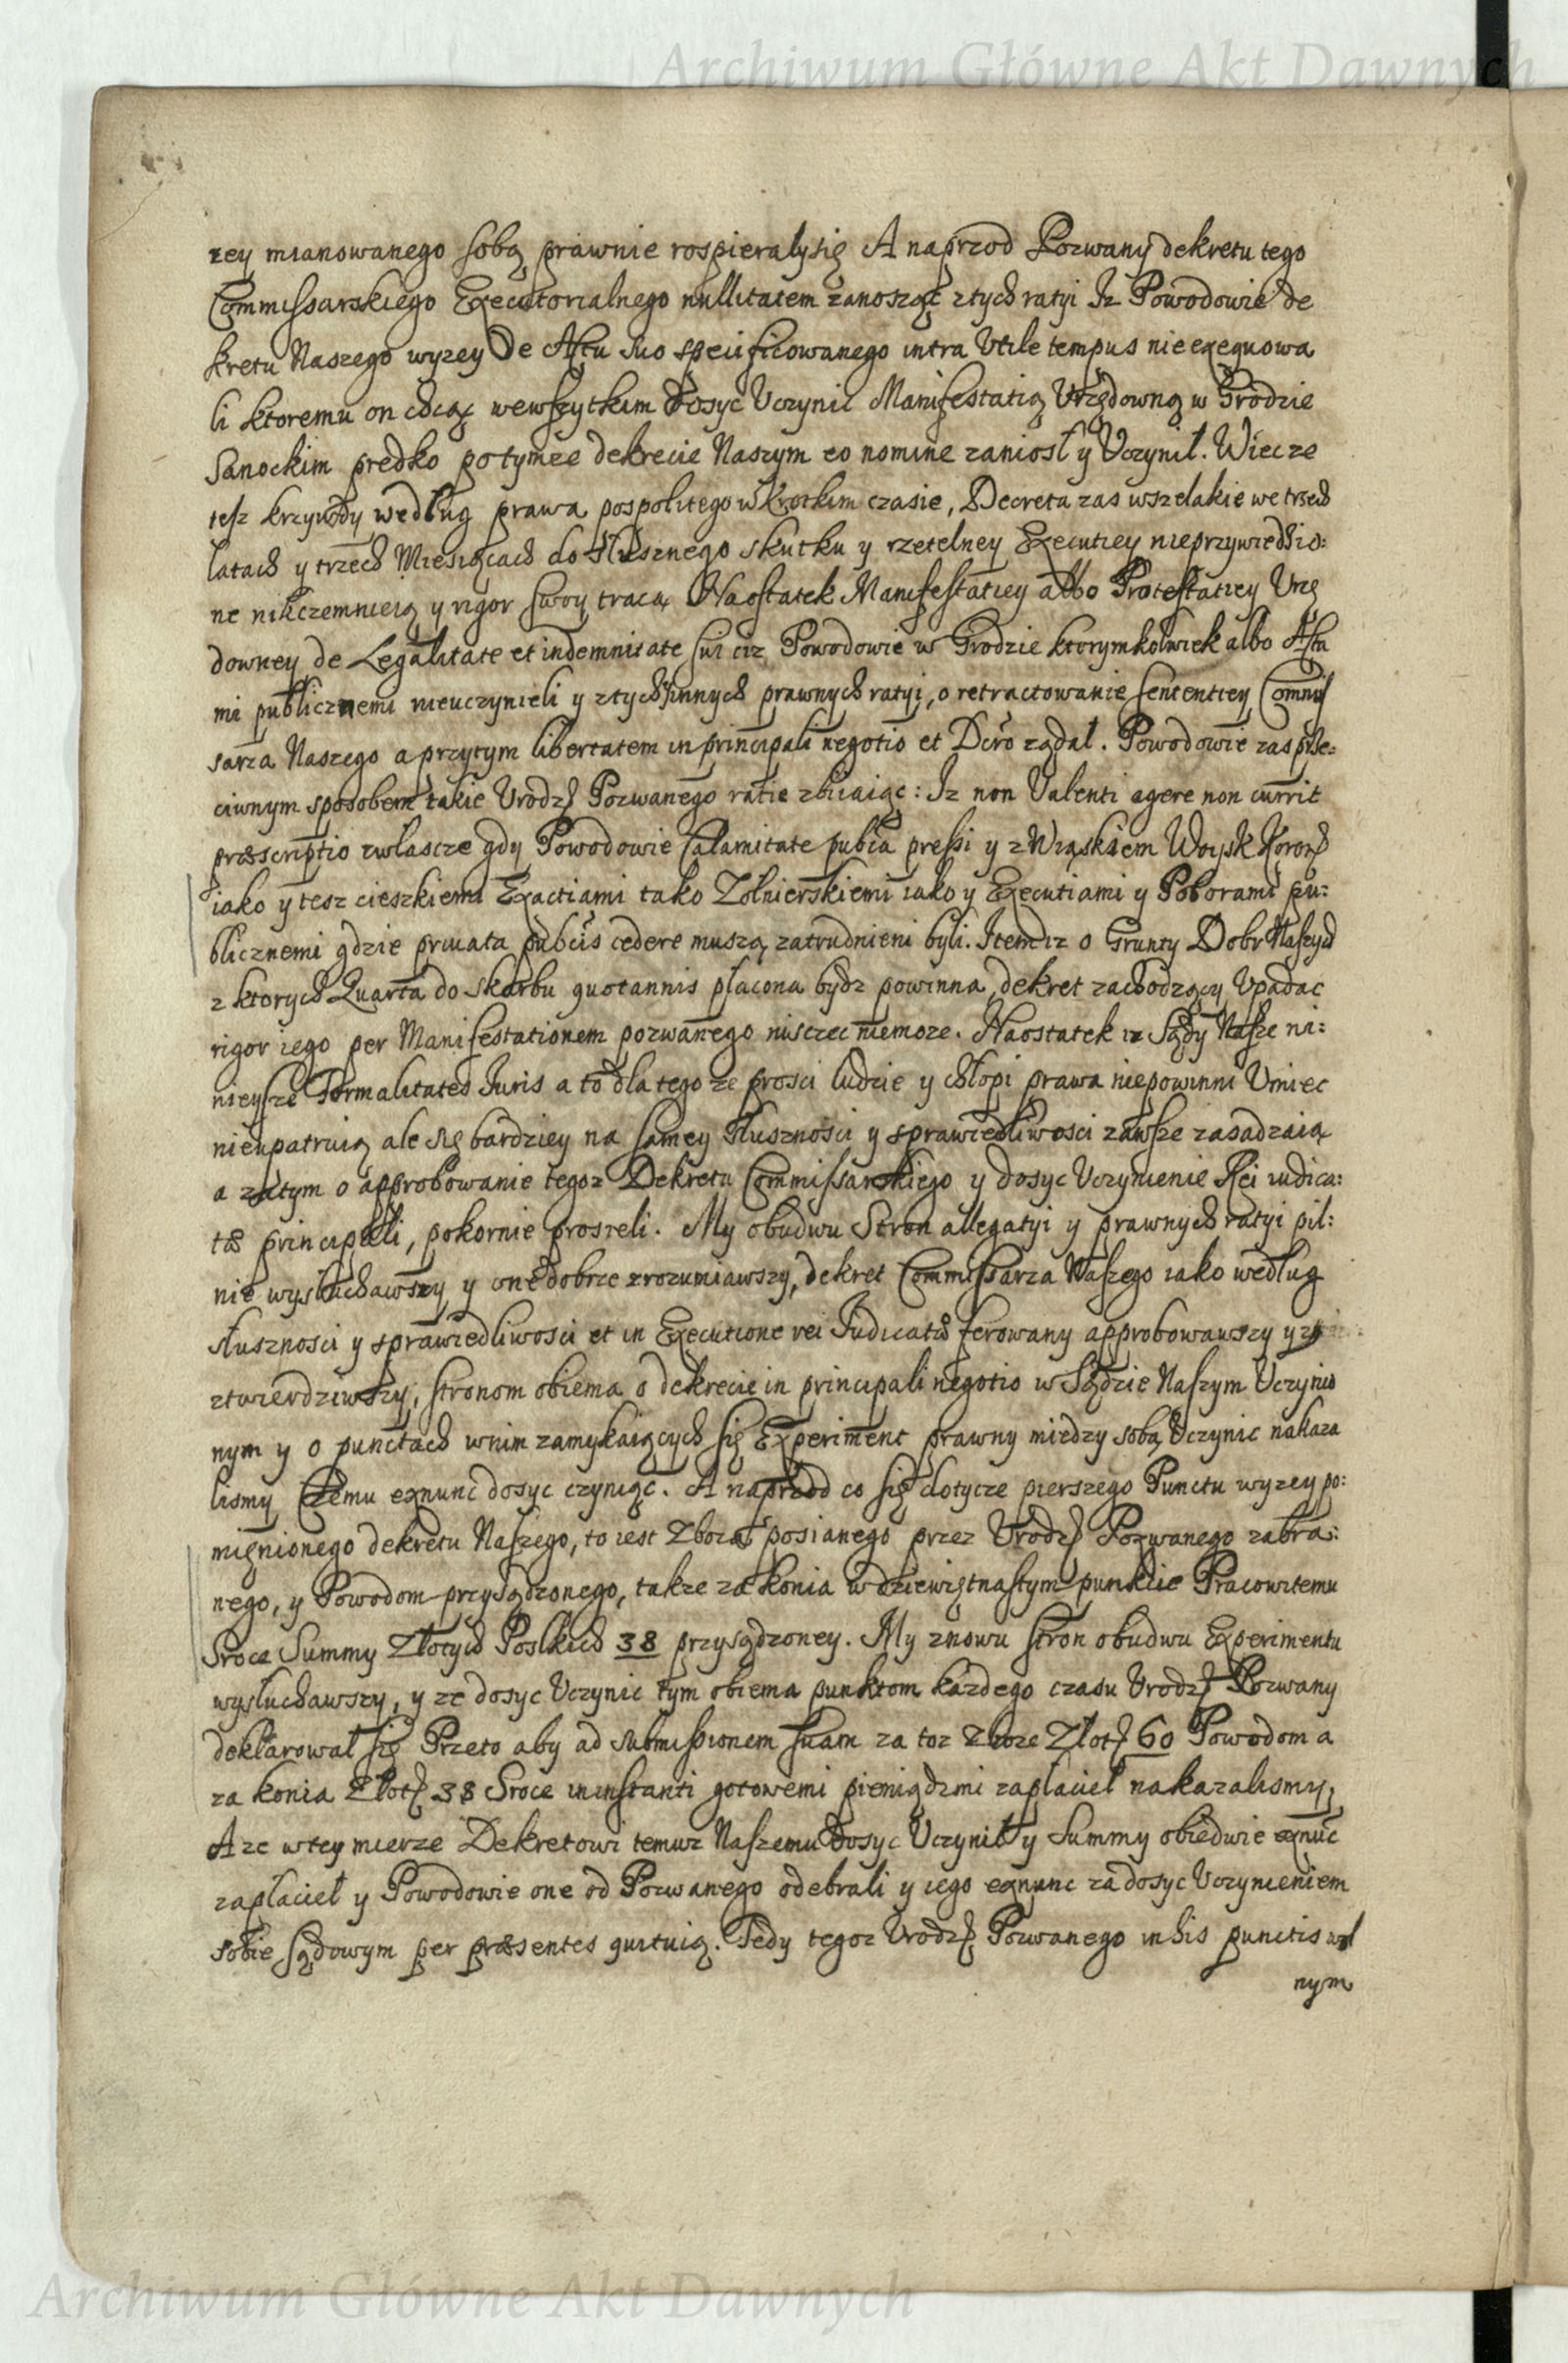 Archiwum Główne Akt Dawnych
zey mianowanego sobą prawnie rospieralysię A naprzod Pozwany dekretu tego
Commissarskiego Executorialnego nullitatem zanosząc ztych ratyi Iz Powodowie de
kretu Naszego wyzey De Actu suo specificowanego intra Utile tempus nie exequowa
li ktoremu on chcąc wewszytkim dosyc Uczynic Manifestatią Urzędowną w Grodzie
Sanockim predko potymze dekrecie Naszym eo nomine zaniosł y Uczynił. Wiec ze
tesz krzywdy według prawa pospolitego w krotkim czasie, Decreta zas wszelakie we trzech
latach y trzech Miesiącach do słusznego skutku y rzetelney Executiey nieprzywiedzio:
ne nikczemnieią y rigor swoy tracą Naostatek Manifestatiey albo Protestatiey Urzę
downey de Legalitate et indemnitate sui ciz Powodowie w Grodzie ktorymkolwiek albo Acta
mi publicznemi nieuczynieli y ztych innych prawnych ratyi, o retractowanie sententiey Commis
sarza Naszego a przytym libertatem in principali negotio et Dcro ządał. Powodowie zas prze:
ciwnym sposobem takie Urodz Pozwanego ratie zbiiaiąc: Iz non Valenti agere non currit
præscriptio zwlascze gdy Powodowie Calamitate pubca pressi y z Wiąskiem Woysk Koron
iako y tesz cieszkiemi Exactiami tako Zołnierskiemi iako y Executiami y Poborami pu:
blicznemi gdzie privata pubcis cedere muszą zatrudnieni byli. Item iz o Grunty Dobr Naszych
z ktorych Quarta do skarbu quotannis płacona bydz powinna, dekret zachodzący Upadac
rigor iego per Manifestationem pozwanego nisczec niemoze. Naostatek iz Sądy Nasze ni:
nieysze Formalitates Iuris a to dla tego ze prosci ludzie y chłopi prawa niepowinni Umiec
nieupatruią ale się bardziey na samey słusznosci y sprawiedliwosci zawsze zasadzaią
a zatym o approbowanie tegoz Dekretu Commissarskiego y dosyc Uczynienie Rei iudica:
tæ principali, pokornie prosieli. My obudwu Stron allegatyi y prawnych ratyi pil:
nie wysłuchawszy y one dobrze zrozumiawszy, dekret Commissarza Naszego iako według
słusznosci y sprawiedliwosci et in Executione rei Iudicatæ ferowany approbowawszy y
ztwierdziwszy, stronom obiema o dekrecie in principali negotio w Sądzie Naszym Uczynio
nym y o punctach wnim zamykaiących się Experiment prawny miedzy sobą Uczynic nakaza
lismy Czemu exnunc dosyc czyniąc. A naprzod co się dotycze pierszego Punctu wyzey po:
mięnionego dekretu Naszego, to iest Zboza posianego przez Urodz Pozwanego zabra:
nego, y Powodom przysądzonego, takze za konia w dziewiętnastym punkcie Pracowitemu
Sroce Summy Złotych Polskich 38 przysądzoney. My znowu stron obudwu Experimentu
wysłuchawszy, y ze dosyc Uczynic tym obiema punktom kazdego czasu Urodz Pozwany
deklarował się Przeto aby ad submissionem suam za toz Zboze Złot 60 Powodom a
za konia Złot 38 Sroce in instanti gotowemi pieniądzmi zapłacieł nakazalismy,
A ze w tey mierze Dekretowi temuz Naszemu dosyc Uczynił y Summy obiedwie exnunc
zapłacieł y Powodowie one od Pozwanego odebrali y iego exnunc za dosyc Uczynieniem
sobie sądowym per præsentes quituią. Tedy tegoz Urodz Pozwanego in his punctis wol
nym
Archiwum Główne Akt Dawnych